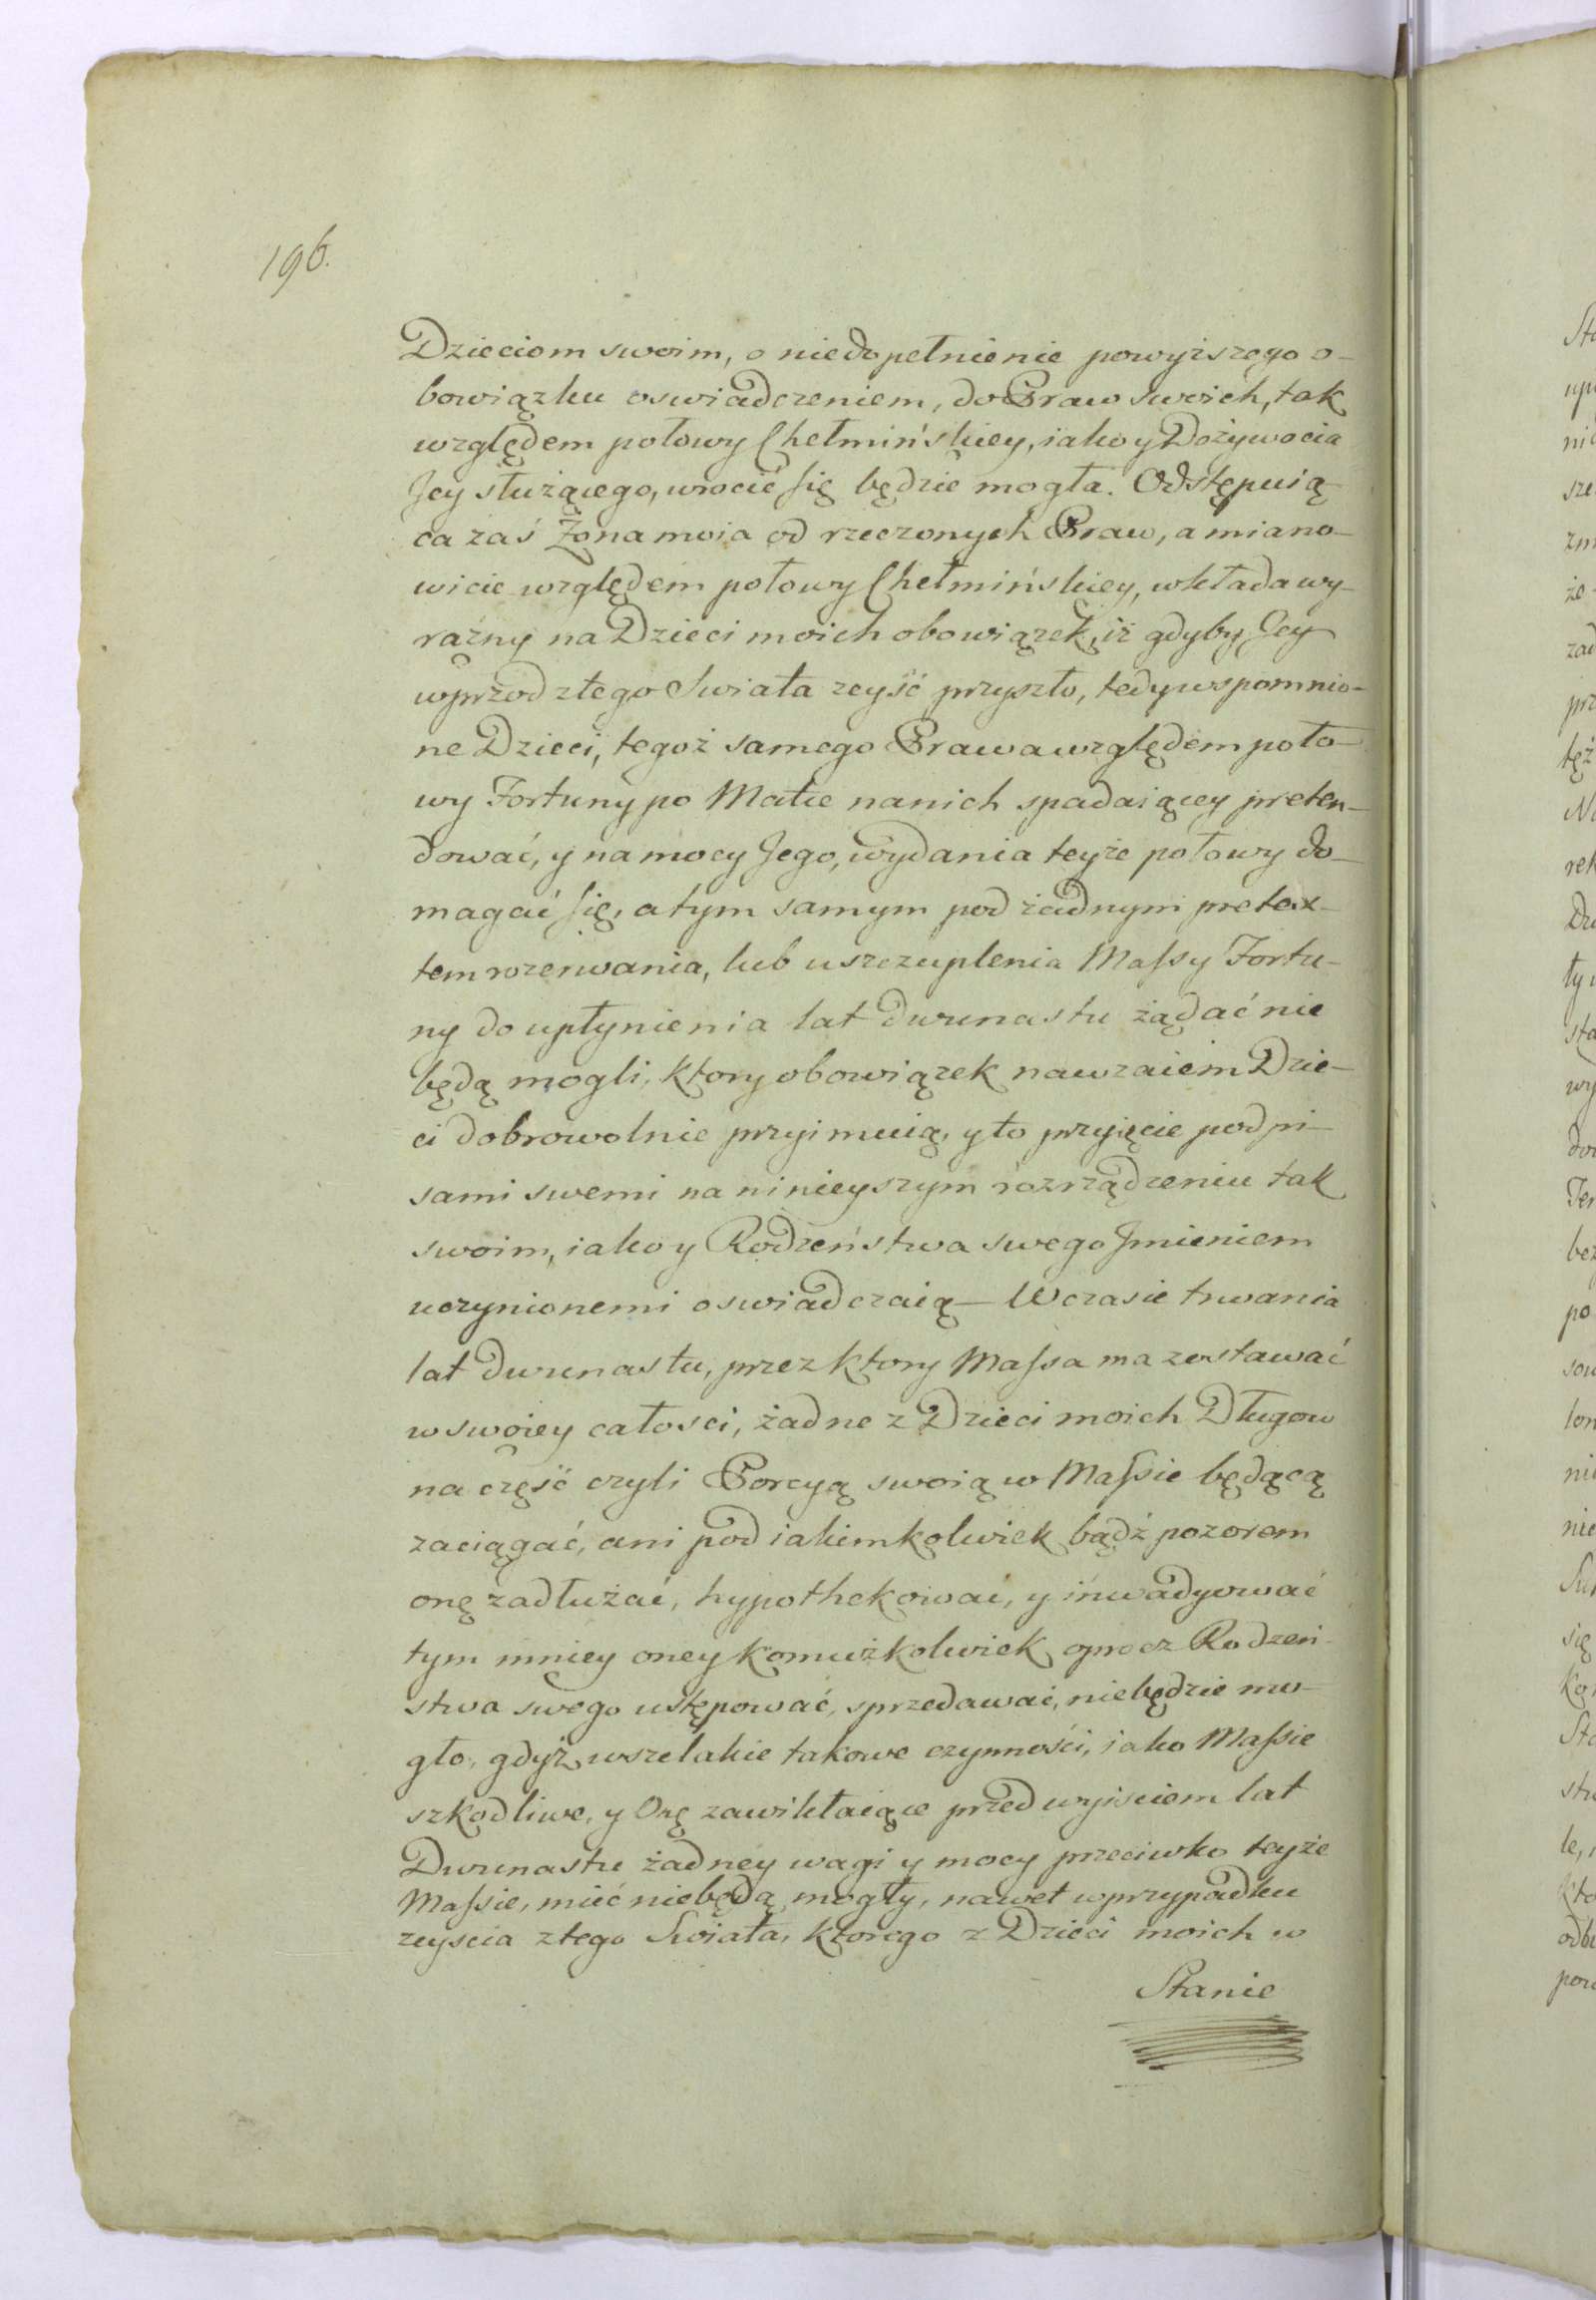 196.
Dzieciom swoim, o niedopełnienie powyższego o-
bowiązku oswiadczeniem, do Praw swoich, tak
względem połowy Chełmińskiey, iako y Dożywocia
Jey służącego, wrocić się będzie mogła. Odstępuią
ca zaś Żona moia od rzeczonych Praw, a miano-
wicie względem połowy Chełmińskiey, wkłada wy-
razny na Dzieci moich obowiązek, iż gdyby Jey
wprzod ztego Swiata zeyść przyszło, tedy wspomnio-
ne Dzieci, tegoż samego Prawa względem poło-
wy Fortuny po Matce na nich spadaiącey preten-
dować, y na mocy Jego, wydania teyże połowy do-
magać się, a tym samym pod żadnym pretex-
tem rozerwania, lub uszczuplenia Massy Fortu-
ny do upłynienia lat dwunastu żądać nie
będą mogli, ktory obowiązek nawzaiem Dzie-
ci dobrowolnie przyimuią, y to przyięcie podpi-
sami swemi na ninieyszym rozrządzeniu tak
swoim, iako y Rodzeństwa swego Jmieniem
uczynionemi oswiadczaią — W czasie trwania
lat dwunastu, przez ktory Massa ma zostawać
w swoiey całosci, żadne z Dzieci moich Długow
na część czyli Porcyą swoią w Massie będącą
zaciągać, ani pod iakimkolwiek bądź pozorem
onę zadłużać, hypothekować, y inwadyować
tym mniey oney komużkolwiek oprocz Rodzeń-
stwa swego ustępować, sprzedawać, niebędzie mo-
gło, gdyż wszelakie takowe czynności, iako Massie
szkodliwe, y Onę zawikłaiące przed wyjsciem lat
Dwunastu żadney wagi y mocy przeciwko teyże
Massie, mieć niebędą mogły, nawet w przypadku
zeyscia ztego Swiata, ktorego z Dzieci moich w
Stanie